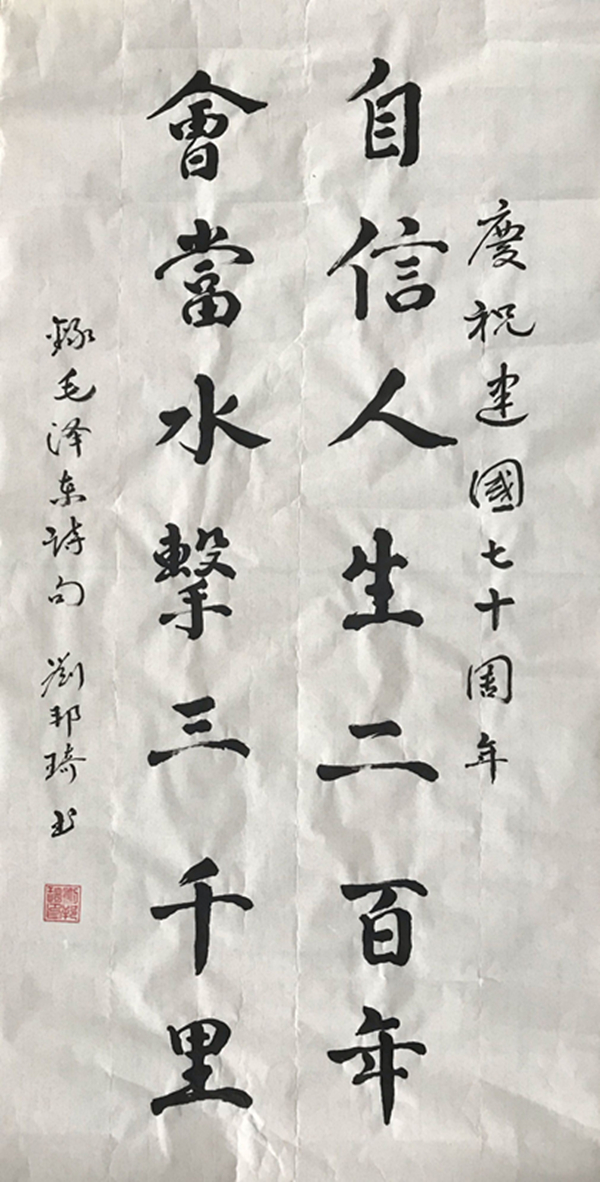 慶祝建國七十周年
自信人生二百年
會當水擊三千里
録毛泽东诗句 劉邦琦书